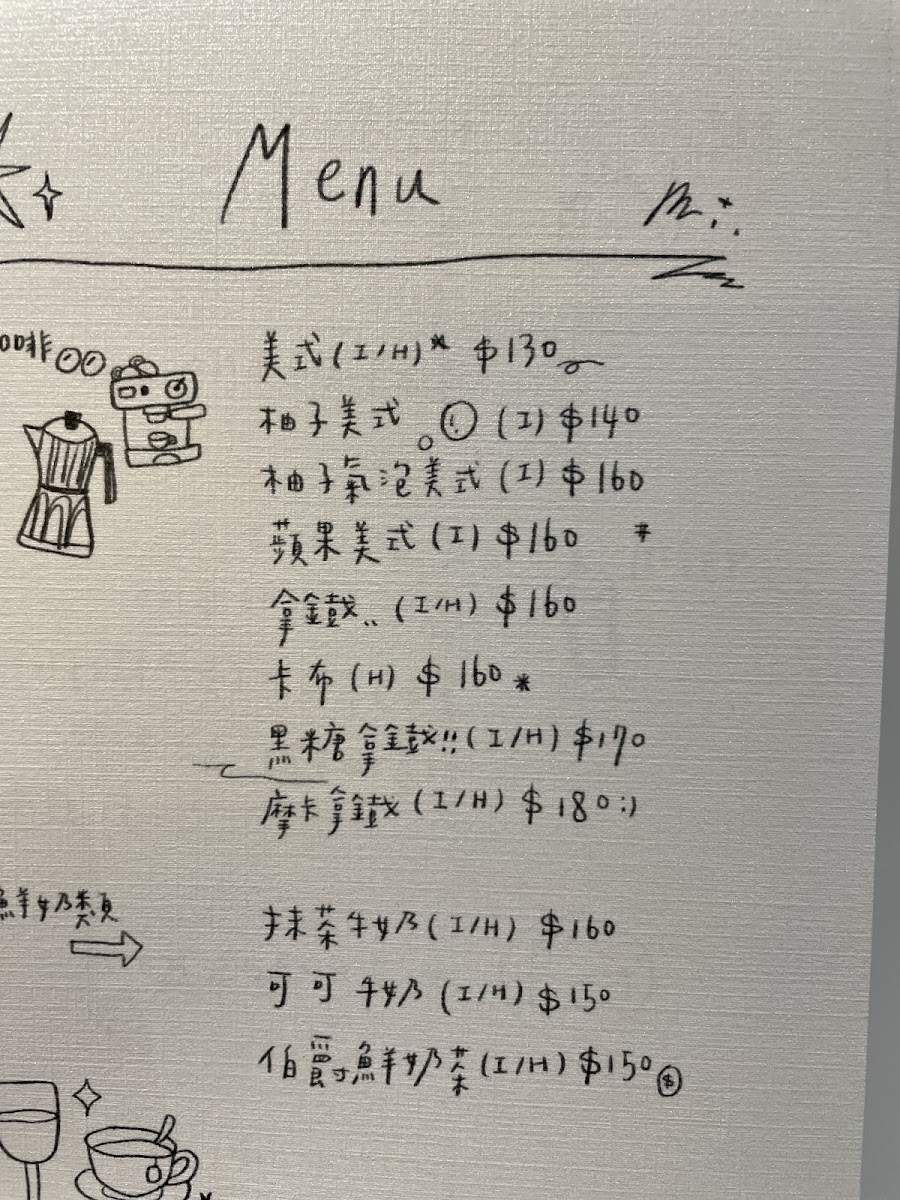 Menu
咖啡
美式(I/H)* $130
柚子美式 (I) $140
柚子氣泡美式 (I) $160
蘋果美式(I) $160 #
拿鐵..(I/H) $160
卡布(H) $160*
黑糖拿鐵!!(I/H) $170
摩卡拿鐵(I/H) $180:)
鮮奶類
抹茶牛奶(I/H) $160
可可牛奶(I/H) $150
伯爵鮮奶茶(I/H) $150 $